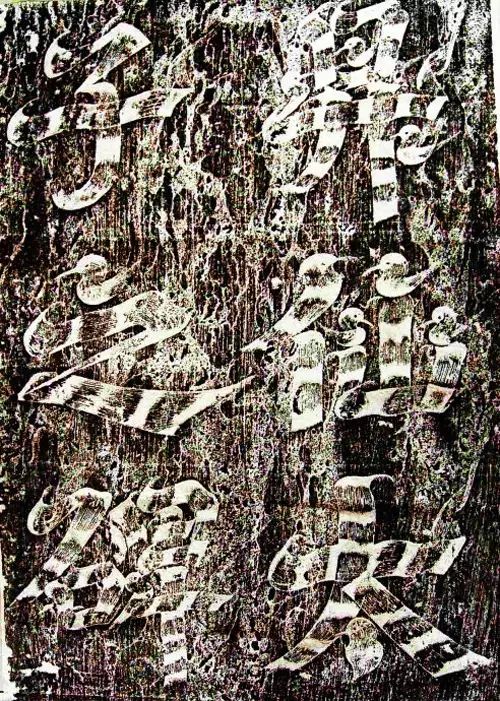 昇仙太
子之碑